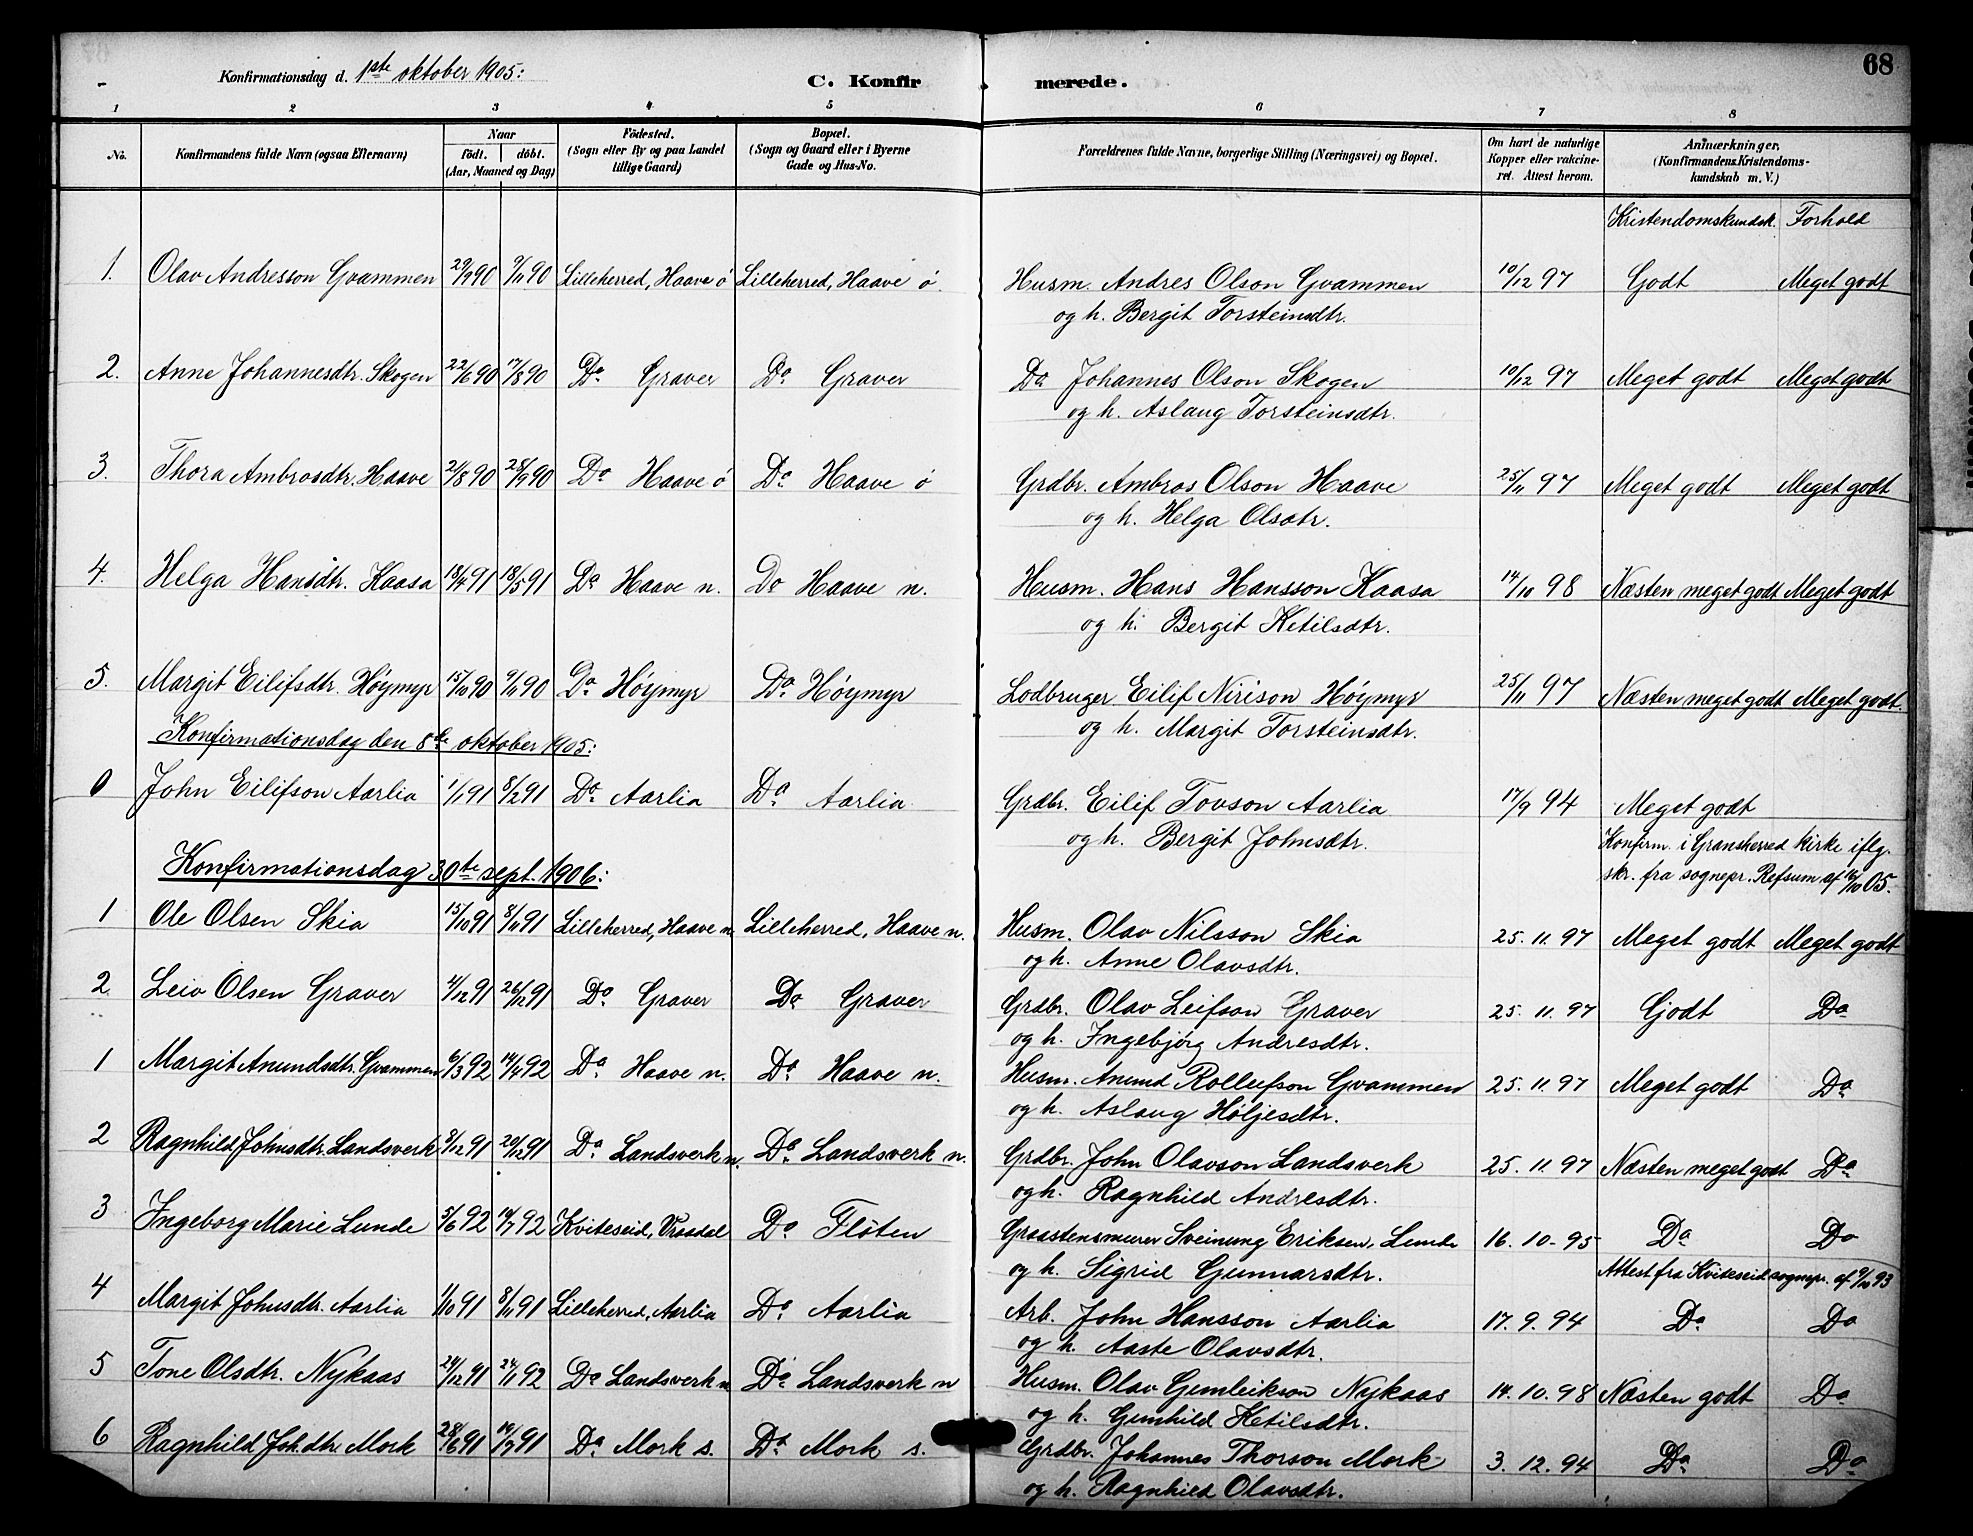 68
Konfirmationsdag d. 1ste oktober 1905:
C. Konfirmerede.
1 2 3 4 5 6 7 8
No. Konfirmandens fulde Navn (ogsaa Efternavn) Naar født. døbt. (Aar, Maaned og Dag) Fødested. (Sogn eller By og paa Landet tillige Gaard) Bopæl. (Sogn og Gaard eller i Byerne Gade og Hus-No. Forældrenes fulde Navne, borgerlige Stilling (Næringsvei) og Bopæl. Om havt de naturlige Kopper eller vakcineret. Attest herom. Anmærkninger. (Konfirmandens Kristendomskundskab m. V.)
Kristendomskundsk. Forhold
1. Olav Andresson Gvammen 29/9 90 9/11 90 Lilleherred, Haave ø Lilleherred, Haave ø. Husm. Andres Olson Gvammen 10/12 97 Godt Meget godt
og h. Bergit Torsteinsdtr.
2. Anne Johannesdtr. Skogen 22/6 90 17/8 90 Do Graver Do Graver Do Johannes Olson Skogen 10/12 97 Meget godt Meget godt
og h. Aslaug Torsteinsdtr.
3. Thora Ambrosdtr. Haave 21/8 90 28/9 90 Do Haave ø Do Haave ø Grdbr. Ambros Olson Haave 25/11 97 Meget godt Meget godt
og h. Helga Olsdtr.
4. Helga Hansdtr. Kaasa 18/4 91 18/5 91 Do Haave n. Do Haave n. Husm. Hans Hansson Kaasa 14/10 98 Næsten meget godt Meget godt
og h. Bergit Ketilsdtr.
5. Margit Eilifsdtr. Høymyr 15/10 90 9/11 90 Do Høymyr Do Høymyr Lodbruger Eilif Nirison Høymyr 25/11 97 Næsten meget godt Meget godt.
og h. Margit Torsteinsdtr.
Konfirmationsdag den 8de oktober 1905:
0 John Eilifson Aarlia 1/1 91 8/2 91 Do Aarlia Do Aarlia Grdbr. Eilif Tovson Aarlia 17/9 94 Meget godt
og h. Bergit Johnsdtr. Konfirm. i Gransherred kirke iflg.
skr. fra sognepr. Refsum af 16/10 05.
Konfirmationsdag 30te sept. 1906:
1 Ole Olsen Skia 15/10 91 8/11 91 Lilleherred, Haave n. Lilleherred, Haave n. Husm. Olav Nilsson Skia 25. 11. 97 Meget godt Meget godt
og h. Anne Olavsdtr.
2. Leiv Olsen Graver 4/12 91 26/12 91 Do Graver Do Graver Grdbr. Olav Leifson Graver 25. 11. 97 Godt Do
og h. Ingebjørg Andresdtr.
1 Margit Anundsdtr. Gvammen 6/3 92 14/4 92 Do Haave n. Do Haave n. Husm. Anund Rollefson Gvammen 25. 11. 97 Meget godt Do
og h. Aslaug Høljesdtr.
2 Ragnhild Johnsdtr. Landsverk 3/12 91 20/12 91 Do Landsverk n. Do Landsverk n. Grdbr. John Olavson Landsverk 25. 11. 97 Næsten meget godt Do
og h. Ragnhild Andresdtr.
3 Ingeborg Marie Lunde 5/6 92 14/7 92 Kviteseid, Vraadal Do Fløten Graastensmurer Sveinung Eriksen Lunde 16. 10. 95 Do Do
og h. Sigrid Gunnarsdtr. Attest fra Kviteseid sognepr. af 9/10 93
4 Margit Johnsdtr. Aarlia 1/10 91 8/11 91 Lilleherred, Aarlia Do Aarlia Arb. John Hansson Aarlia 17. 9. 94 Do Do
og h. Aaste Olavsdtr.
5 Tone Olsdtr. Nykaas 24/12 91 24/1 92 Do Landsverk n Do Landsverk n Husm. Olav Gunleikson Nykaas 14. 10. 98 Næsten godt Do
og h. Gunhild Ketilsdtr.
6 Ragnhild Joh.dtr. Mork 28/6 91 19/7 91 Do Mork s. Do Mork s. Grdbr. Johannes Thorson Mork 3. 12. 94 Do Do
og h. Ragnhild Olavsdtr.